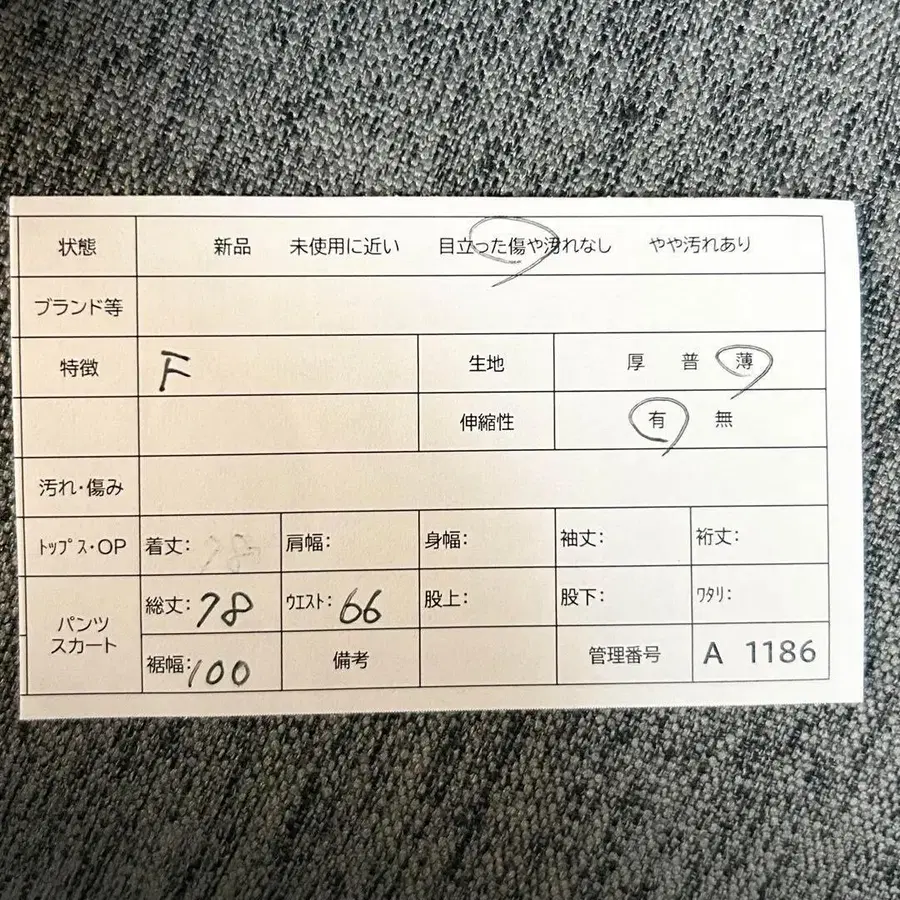 状態 新品 未使用に近い 目立った傷や汚れなし やや汚れあり
ブランド等
特徴 F 生地 厚 普 薄
伸縮性 有 無
汚れ・傷み
トップス・OP 着丈: 肩幅: 身幅: 袖丈: 裄丈:
パンツ スカート 総丈: 78 ウエスト: 66 股上: 股下: ワタリ:
裾幅: 100 備考 管理番号 A 1186